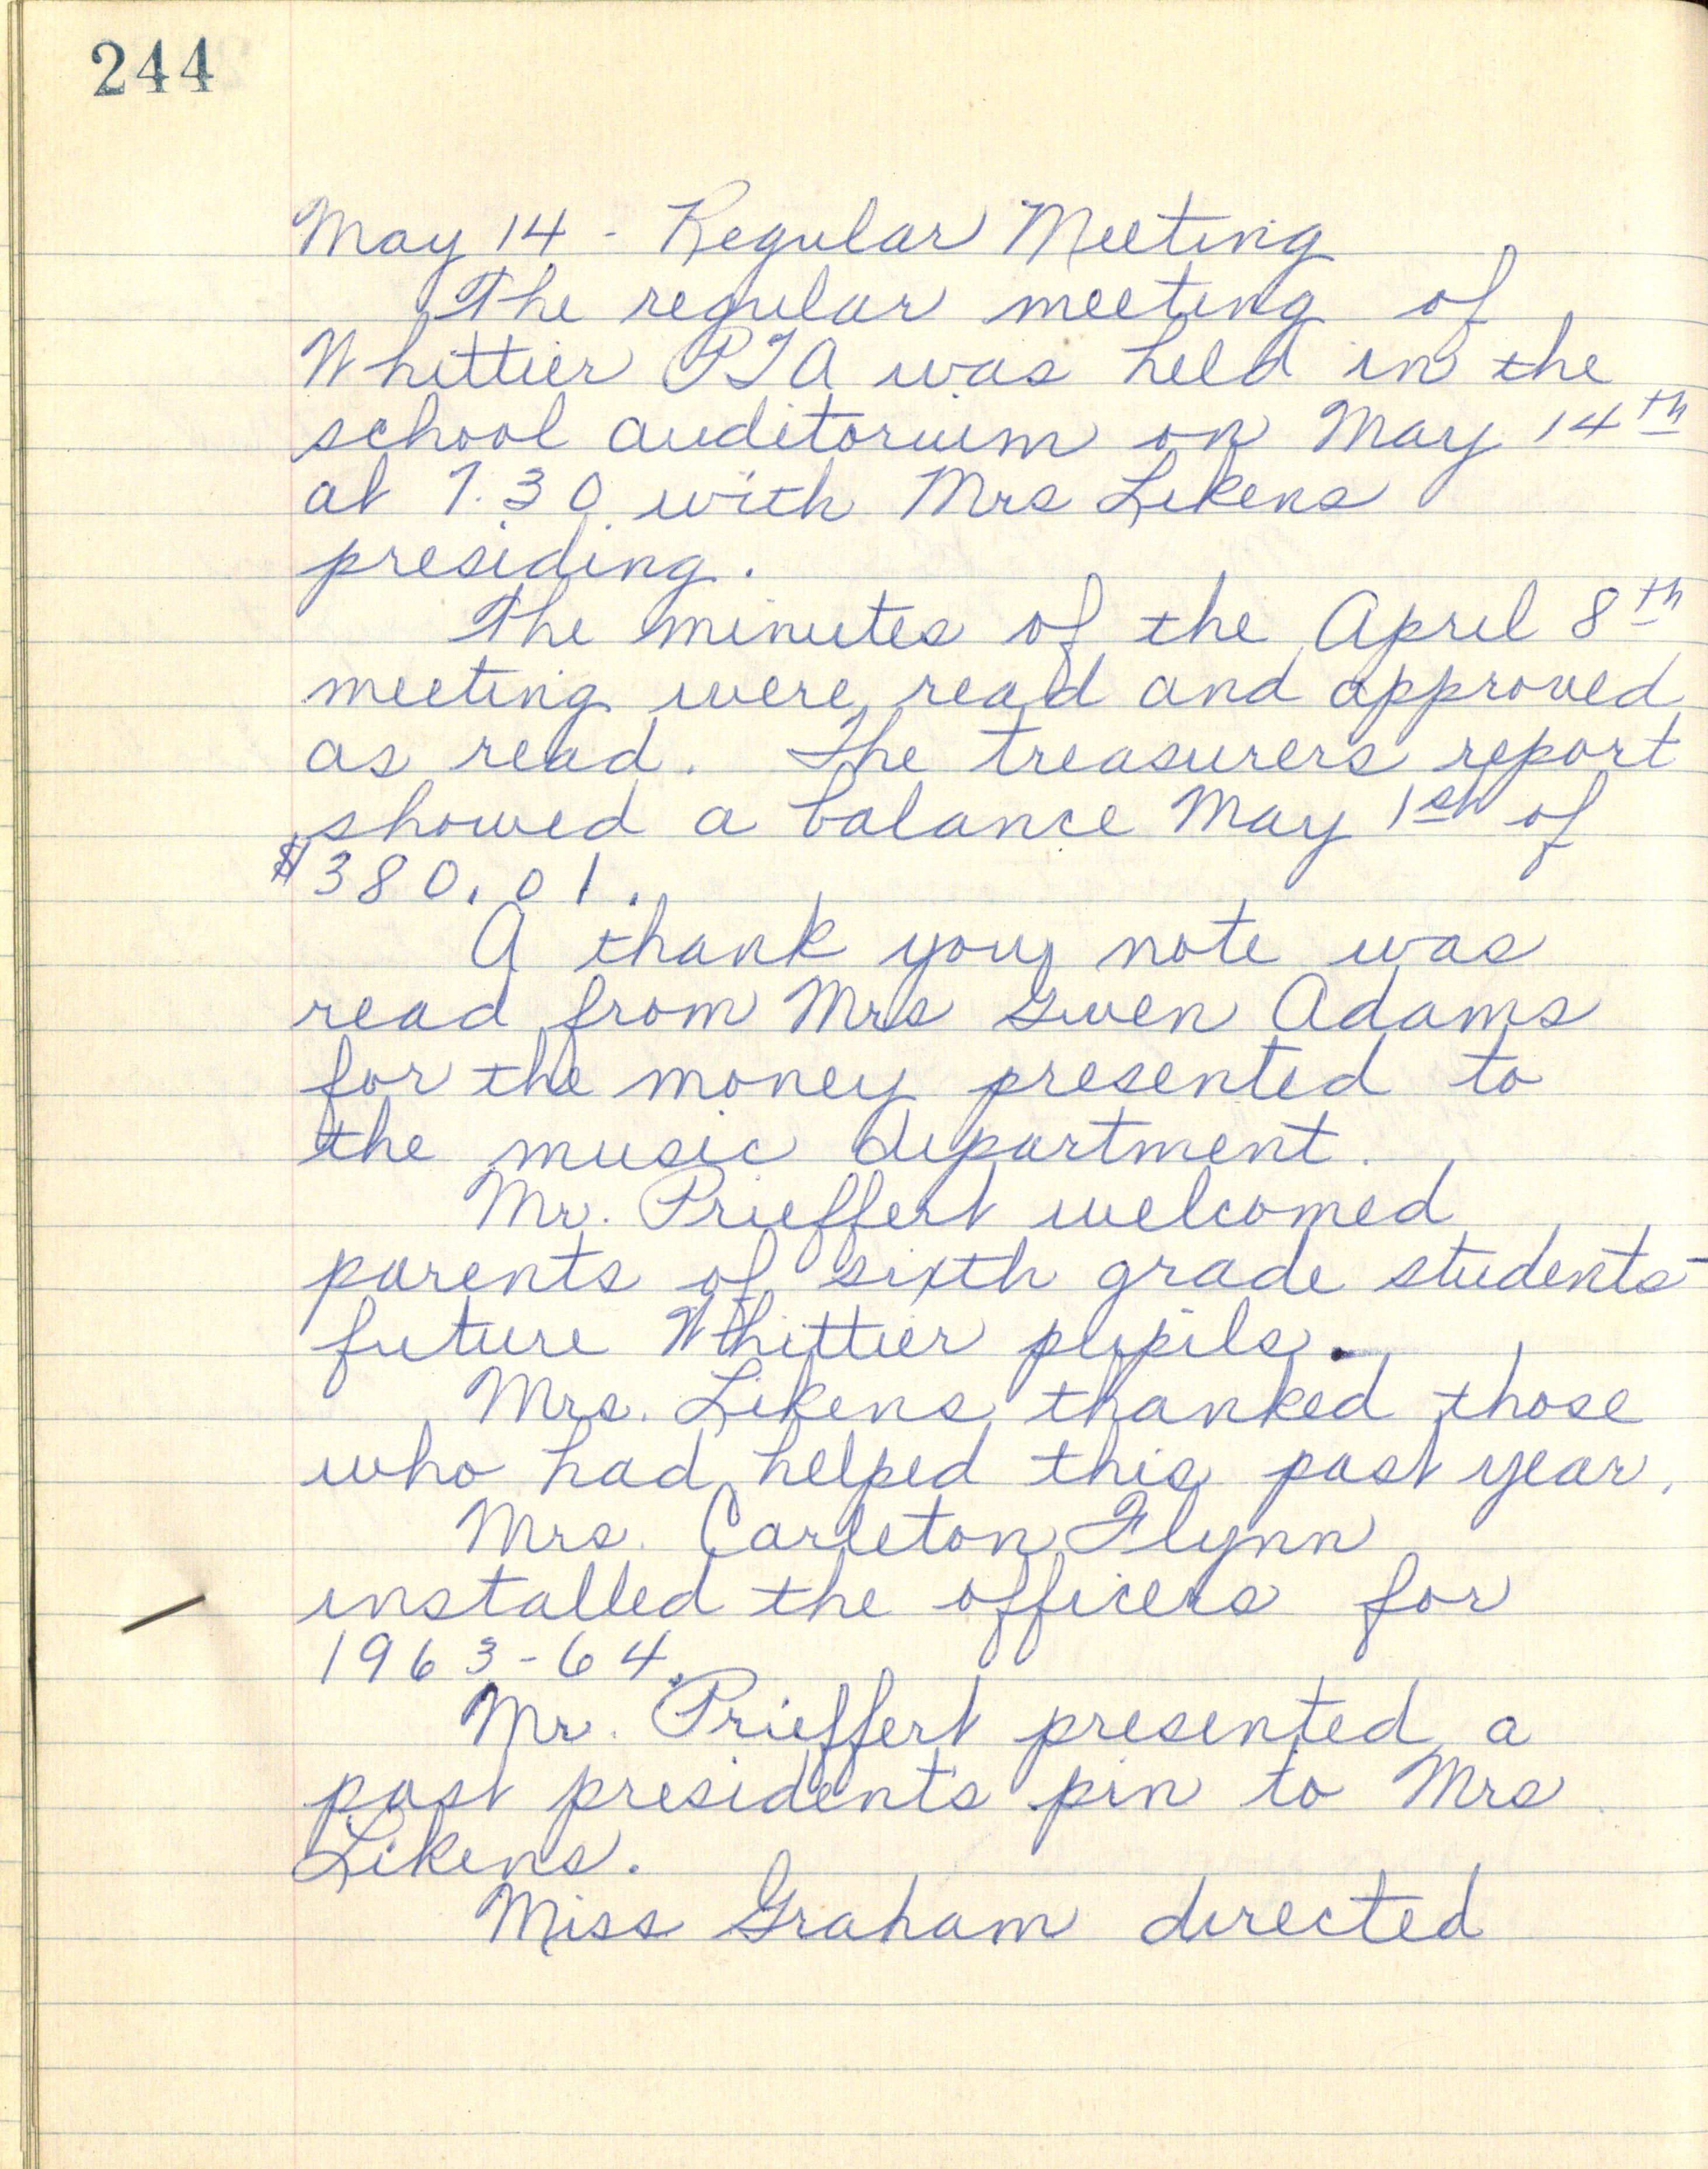 244
May 14 - Regular Meeting
The regular meeting of
Whittier PTA was held in the
school auditorium on May 14th
at 7:30 with Mrs Likens
presiding.
The minutes of the April 8th
meeting were read and approved
as read. The treasurers report
showed a balance May 1st of
$380.01.
A thank you note was
read from Mrs Gwen Adams
for the money presented to
the music department.
Mr. Prieffert welcomed
parents of sixth grade students-
future Whittier pupils.
Mrs. Likens thanked those
who had helped this past year.
Mrs. Carleton Flynn
installed the officers for
1963-64.
Mr. Prieffert presented a
past president's pin to Mrs
Likens.
Miss Graham directed